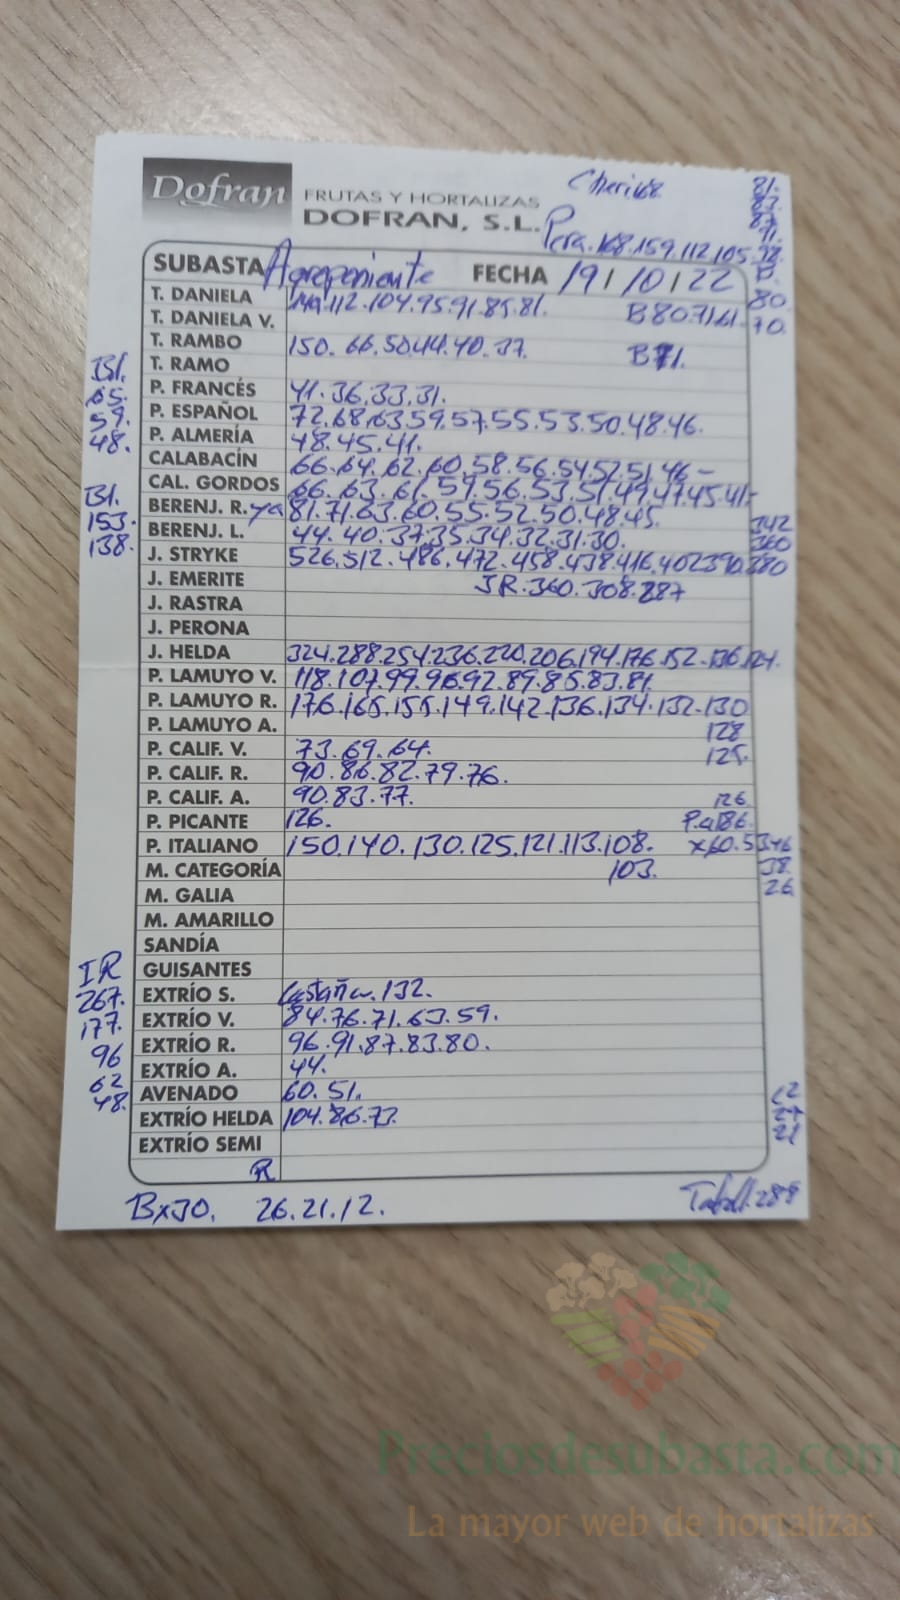 Dofran
FRUTAS Y HORTALIZAS
DOFRAN, S.L.
81.
83.
Pera. 168.159.112.105.
SUBASTA Agroponiente FECHA 19/10/22
T. DANIELA 112.104.95.91.85.81. B 80.71.61.
80
70.
T. DANIELA V.
T. RAMBO 150.66.50.44.40.37. B 71.
T. RAMO
Bl.
65.
59.
48.
P. FRANCÉS 41.36.33.31.
P. ESPAÑOL 72.68.63.59.57.55.53.50.48.46.
P. ALMERÍA 48.45.41.
CALABACÍN 66.64.62.60.58.56.54.52.51.46-
CAL. GORDOS 66.63.61.59.56.53.51.49.47.45.41-
Bl.
153.
138.
BERENJ. R. ya 81.71.63.60.55.52.50.48.45.
BERENJ. L. 44.40.37.35.34.32.31.30.
342
360
J. STRYKE 526.512.486.472.458.438.416.402.390.380
J. EMERITE JR.360.308.287
J. RASTRA
J. PERONA
J. HELDA 324.288.254.236.220.206.194.176.152.136.124.
P. LAMUYO V. 118.107.99.96.92.89.85.83.81.
P. LAMUYO R. 176.165.155.149.142.136.134.132.130
P. LAMUYO A. 128
P. CALIF. V. 73.69.64. 125.
P. CALIF. R. 90.86.82.79.76.
P. CALIF. A. 90.83.77. 126
P. PICANTE 126. P.a 186.
P. ITALIANO 150.140.130.125.121.113.108. x60.53.46
M. CATEGORÍA 103. 38.
M. GALIA 26.
M. AMARILLO
SANDÍA
GUISANTES
IR
267.
177.
96
62
48.
EXTRÍO S. Castaña. 132.
EXTRÍO V. 84.76.71.63.59.
EXTRÍO R. 96.91.87.83.80.
EXTRÍO A. 44.
AVENADO 60.51.
EXTRÍO HELDA 104.86.73.
EXTRÍO SEMI
27
21
R
BxJO. 26.21.12.
288
Preciosdesubasta.com
La mayor web de hortalizas